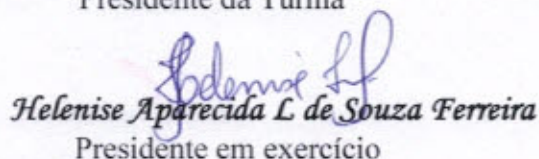 Presidente da Turma
Helenise Aparecida L de Souza Ferreira
Presidente em exercício